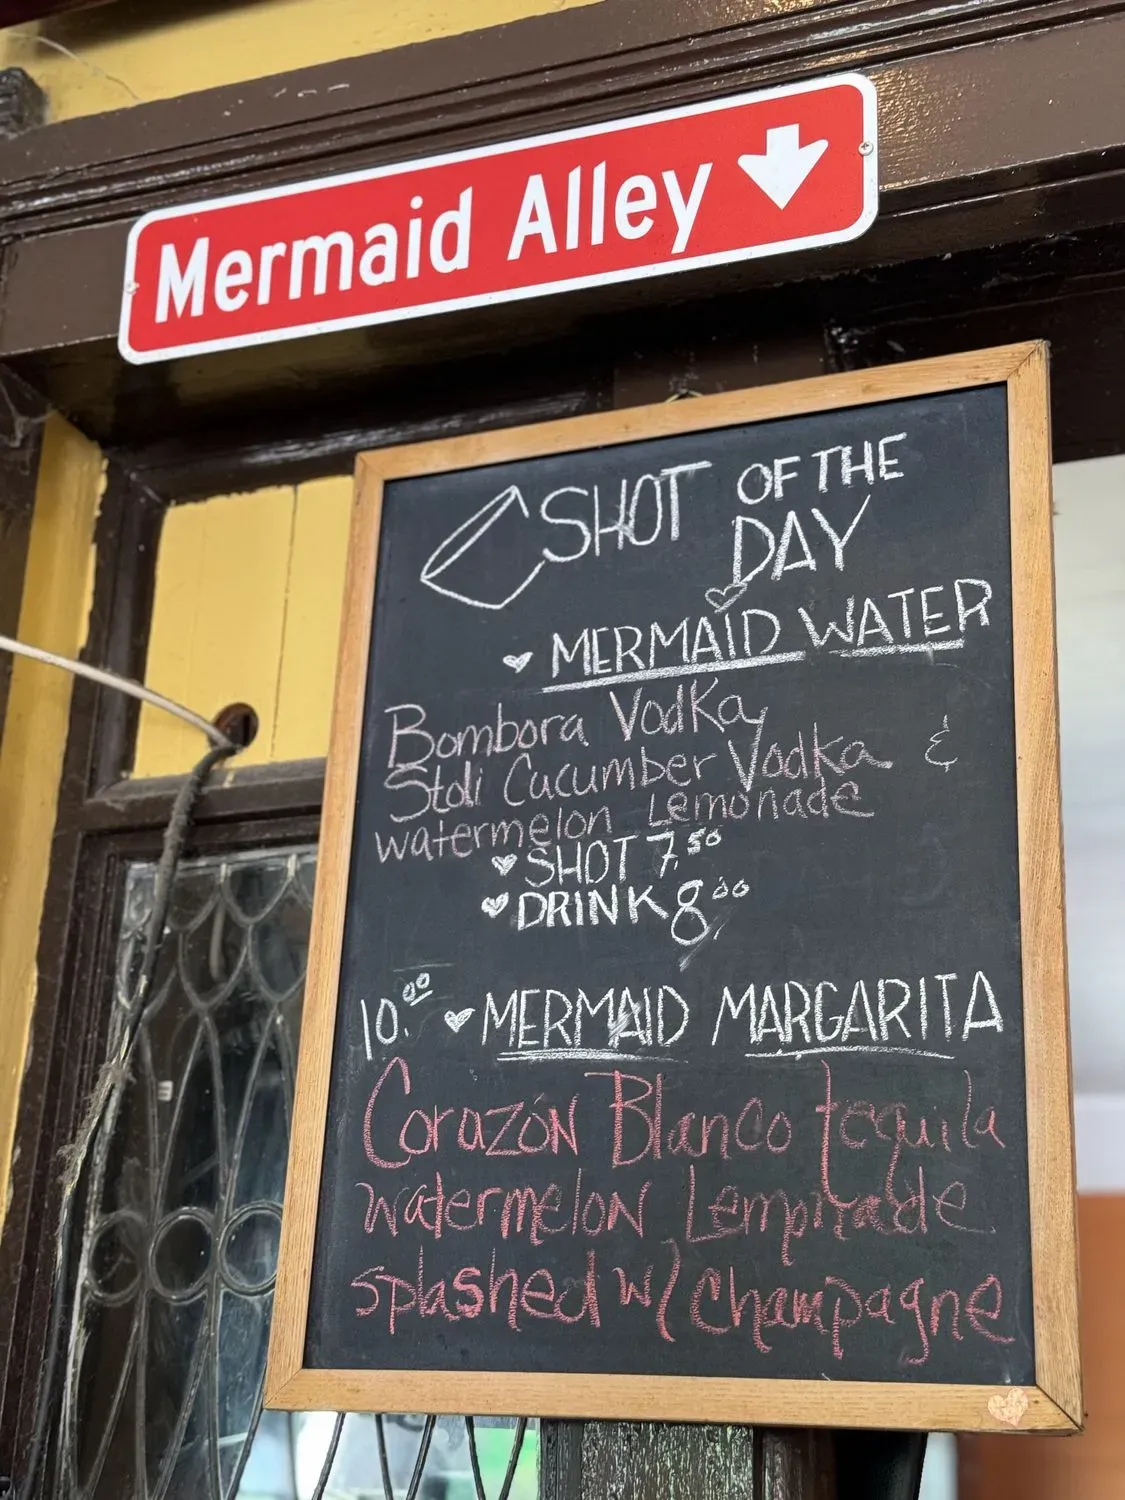 Mermaid Alley
SHOT OF THE
DAY
MERMAID WATER
Bombora Vodka,
Stoli Cucumber Vodka &
watermelon Lemonade
SHOT 7.50
DRINK 8.00
10.00 MERMAID MARGARITA
Corazón Blanco tequila
watermelon Lemonade
splashed w/ champagne